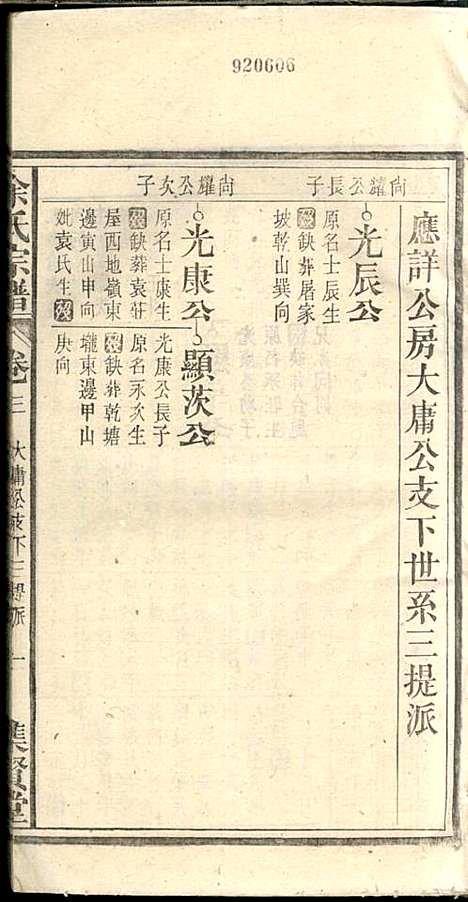 920606
應詳公房大庸公支下世系三提派
尚耀公長子
光辰公
原名士辰生
歿缺葬屠家
坡乾山巽向
尚耀公次子
光康公
原名士康生
歿缺葬袁莊
屋西地嶺東
邊寅山申向
妣袁氏生歿
顯茨公
光康公長子
原名永次生
歿缺葬乾塘
壠東邊甲山
庚向
余氏宗譜
卷三
大庸公支下三提派
一
集賢堂